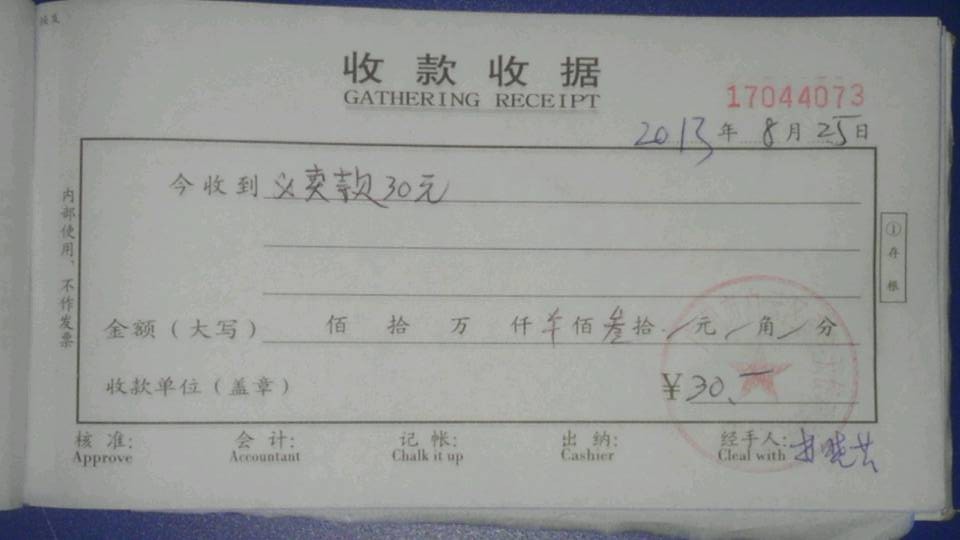 收款收据
GATHERING RECEIPT
17044073
2013年 8月 25日
今收到 义卖款30元
金额（大写） 佰 拾 万 仟 羊 佰 叁 拾 / 元 / 角 / 分
收款单位（盖章） ¥30.—
内部使用、不作发票
① 存根
核准: 会计: 记帐: 出纳: 经手人:
Approve Accountant Chalk it up Cashier Cleal with